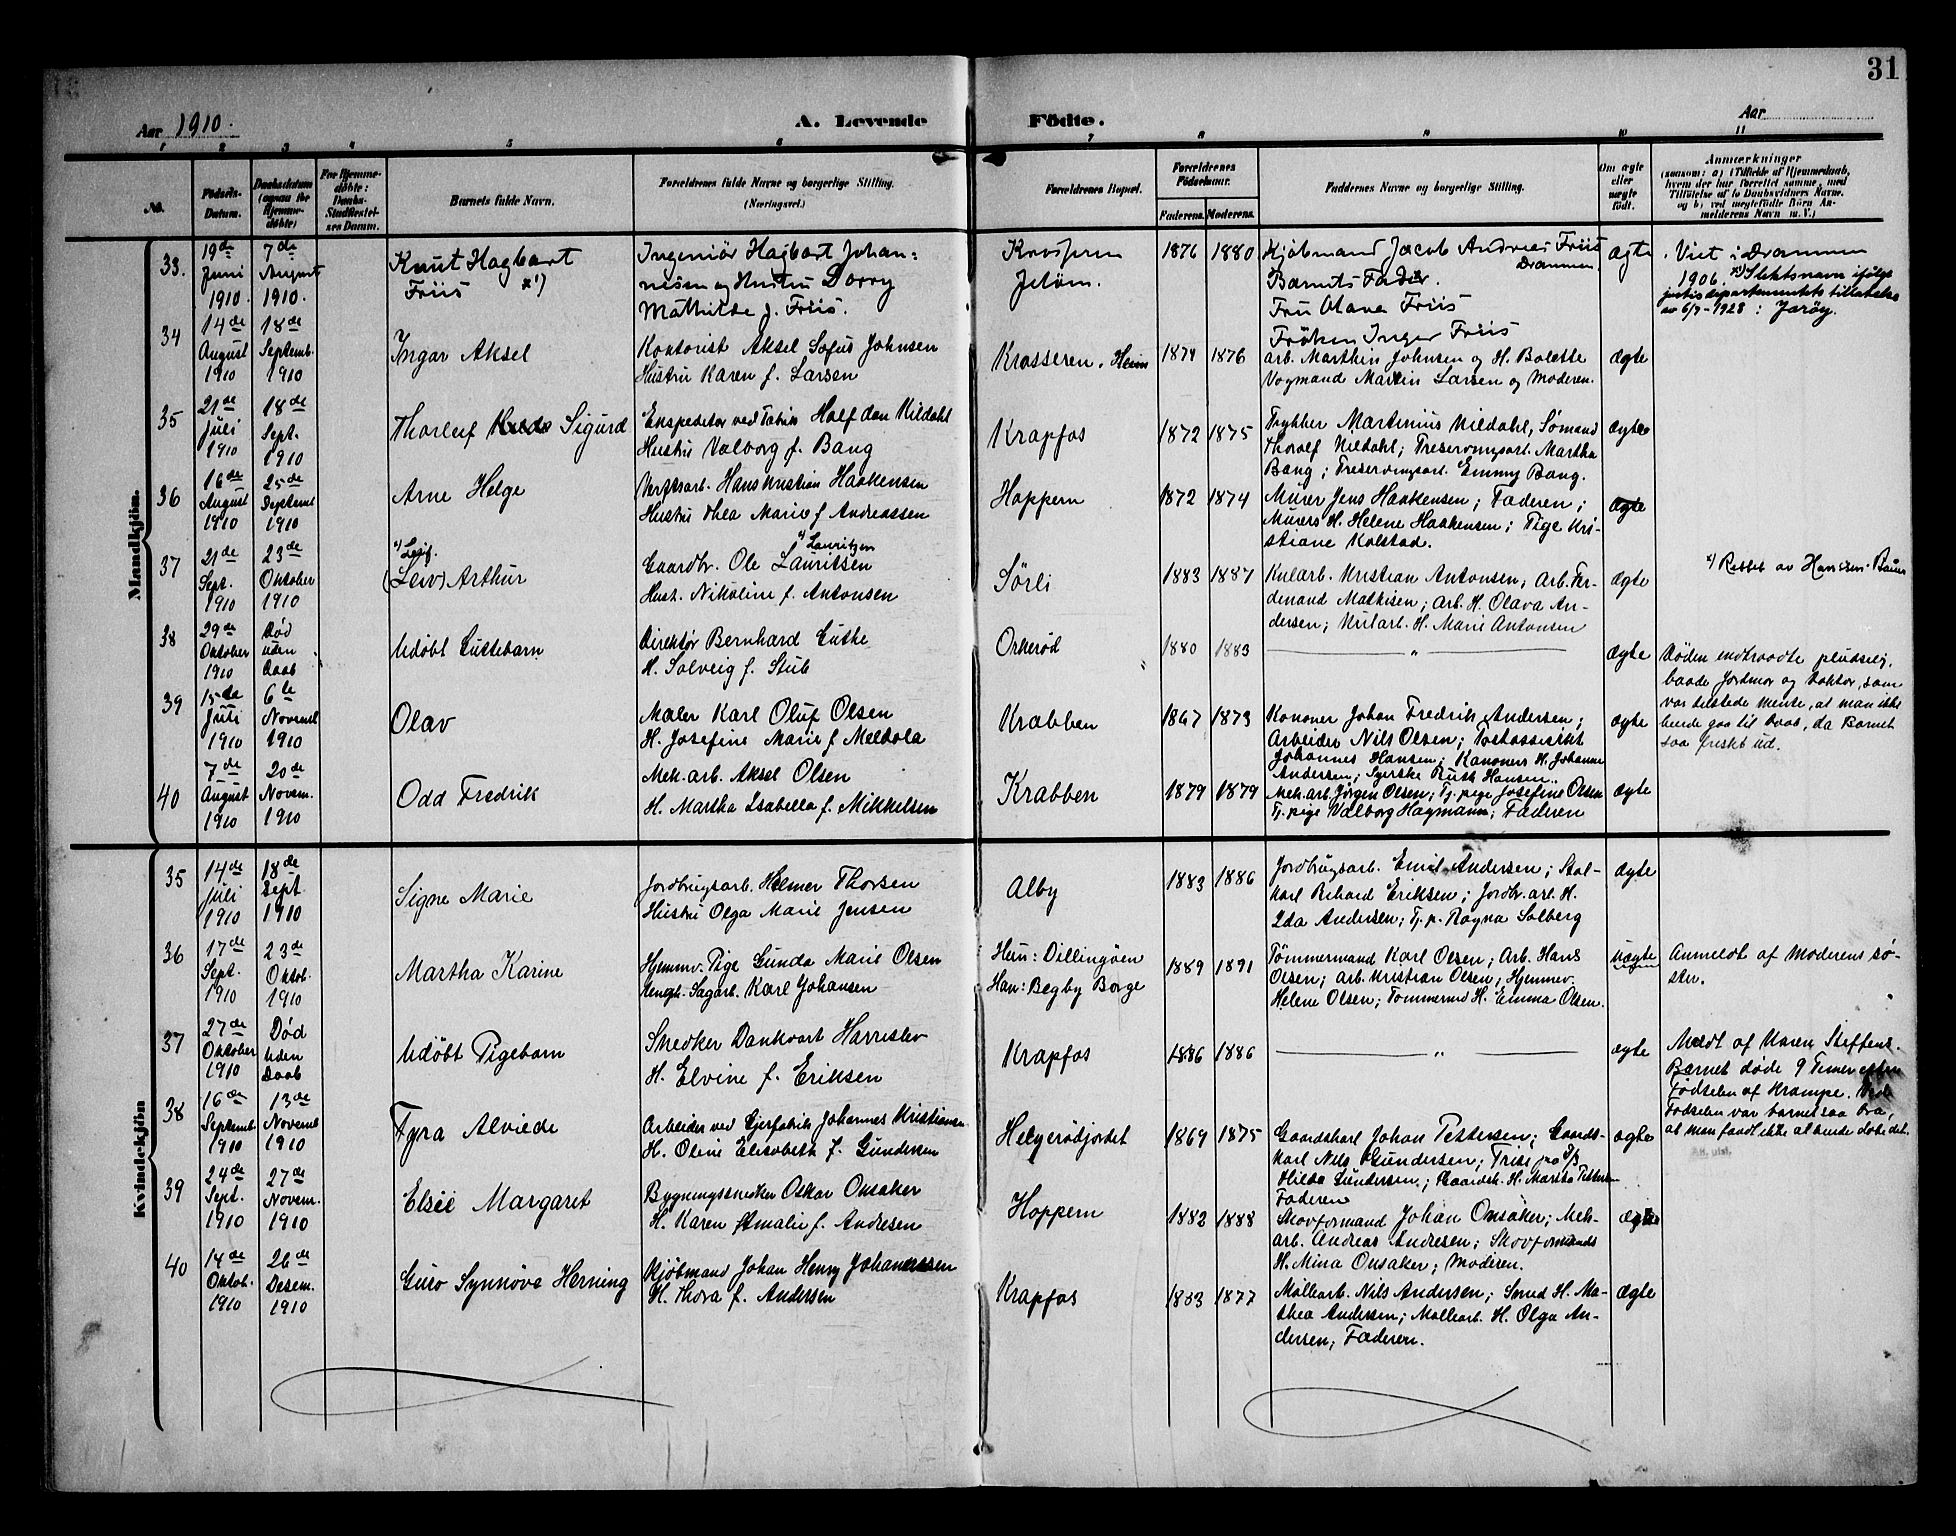 31
Aar 1910. A. Levende Födte. Aar
1 2 3 4 5 6 7 8 9 10 11
No. Fødsels-Datum. Daabsdatum (ogsaa for Hjemme-døbte) For Hjemme-døbte: Daabs-Stadfæstel-ses Datum. Barnets fulde Navn. Forældrenes fulde Navne og borgerlige Stilling. (Næringsvei.) Forældrenes Bopæl. Forældrenes Fødselsaar. Faderens. Moderens. Faddernes Navne og borgerlige Stilling. Om ægte eller uægte født. Anmærkninger
(saasom: a) (Tilfælde af Hjemmedaab, hvem der har forrettet samme, med Tilføielse af to Daabsvidners Navne. og b) ved uægtefødte Børn An-melderens Navn m. V.)
Mandkjön.
33. 19de Juni 1910. 7de August 1910.
Knut Hagbart
Friis x1)
Ingeniør Hagbart Johan=
nesen og Hustru Dorry
Mathilde f. Friis.
Jeløen.
1876 1880
Kjøbmand Jacob Andreas Friis
Drammen.
Barnets Fader.
Fru Olava Friis
Frøken Inger Friis
ægte
Viet i Drammen
1906. x) Slektsnavn ifølge
justisdepartementets tillatelse
av 6/9-1928 : Jarøy.
34 14de August 1910 18de Septemb. 1910
Ingar Aksel
Kontorist Aksel Sofus Johnsen
Hustru Karen f. Larsen
Krosseren.
1874 1876
Arb. Marthin Johnsen og H. Bolette
Vogmand Martin Larsen og Moderen.
ægte
35 21de Juli 1910 18de Sept. 1910
Thorleif Sigurd
Ekspeditør ved Halfdan Kildahl
Hustru Valborg f. Bang
Krapfos
1872 1875
Trykker Martinius Kildahl, Sømand
Thoralf Kildahl; Martha
Bang; Emmy Bang.
ægte
36 16de August 1910 25de Septemb 1910
Arne Helge
Verftsarb. Hans Kristian Haakensen
Hustru Thea Marie f. Andreassen
Hoppern
1872 1874
Murer Jens Haakensen; Faderen;
Murers H. Helene Haakensen; Pige Kri-
stiane Kolstad.
ægte
37 21de Sept. 1910 23de Oktober 1910
x) Leif.
(Leiv) Arthur
x) Lauritzen
Gaardbr. Ole Lauritsen
Hust. Nikoline f. Antonsen
Sørli
1883 1887
Kularb. Kristian Antonsen; Arb. Fer-
dinand Mathisen; Arb. H. Olava An-
dersen; Kularb. H. Marie Antonsen
ægte
x) Rettet av
38 29de Oktober 1910 Død uden Daab
Udøbt Guttebarn
Direktør Bernhard Luthe
H. Solveig f. Stub
Orkerød
1880 1883
— „ —
ægte
Døden indtraadte pludselig,
baade Jordmor og Doktor, som
var tilstede mente, at man ikke
burde gaa til Daab, da Barnet
saa friskt ud.
39 15de Juli 1910 6te Novemb 1910
Olav
Maler Karl Oluf Olsen
H. Josefine Marie f. Meltola
Krabben
1867 1873
Kanoner Johan Fredrik Andersen;
Arbeider Nils Olsen;
Johannes Hansen; Kanoners H. Johanne
Andersen; Syerske Ruth Hansen.
ægte
40 7de August 1910 20de Novem. 1910
Odd Fredrik
Mek. arb. Aksel Olsen
H. Martha Isabella f. Mikkelsen
Krabben
1879 1879
Mek. arb. Jørgen Olsen; Tj. pige Josefine Olsen
Tj. pige Valborg Hagmann; Faderen
ægte
Kvindekjön
35 14de Juli 1910 18de Sept 1910
Signe Marie
Jordbrugsarb. Helmer Thorsen
Hustru Olga Marie Jensen
Alby
1883 1886
Jordbrugsarb. Emil Andersen; Stal-
karl Rikard Eriksen; Jordbr. arb. H.
Ida Andersen; Tj. p. Ragna Solberg
ægte
36 17de Sept. 1910 23de Oktob. 1910
Martha Karine
Hjemmev. Pige Gunda Marie Olsen
Ungk. Sagarb. Karl Johansen
Hun: Dillingøen
Han: Begby Borge
1889 1891
Tømmermand Karl Olsen; Arb. Hans
Olsen; Arb. Kristian Olsen; Hjemmev.
Helene Olsen; Tømmermd H. Emma Olsen.
uægte
Anmeldt af Moderens sø-
ster.
37 27de Oktober 1910 Død Uden Daab
Udøbt Pigebarn
Snedker Dankvart Harreslev
H. Elvine f. Eriksen
Krapfos
1886 1886
— „ —
ægte
Meldt af Karen Steffens.
Barnet døde 9 Timer efter
Fødselen af Krampe. Ved
Fødselen var barnet saa bra,
at man fandt ikke at burde døbe det.
38 16de Septemb. 1910 13de Novemb 1910
Fyra Alviede
Arbeider ved Gjærfabrik Johannes Kristiansen
H. Oline Elisabeth f. Gundersen
Helgerødjordet
1869 1875
Gaardskarl Johan Pettersen; Gaards-
karl Nils Gundersen;
Hilda Gundersen; Gaardsk. H. Martha Pettersen
Faderen
ægte
39 24de Sept. 1910 27de Novem. 1910
Elsie Margaret
Bygningssnedker Oskar Onsaker
H. Karen Amalie f. Andresen
Hoppern
1882 1888
Skovformand Johan Onsaker; Mek-
arb. Andreas Andresen; Skovformands
H. Mina Onsaker; Moderen.
ægte
40 14de Oktob. 1910 26de Desem. 1910
Guro Synnøve Herning
Kjøbmand Johan Henry Johannessen
H. Thora f. Andersen
Krapfos
1883 1877
Møllearb. Nils Andersen; Smed H. Ma-
thea Andersen; Møllearb. H. Olga An-
dersen; Faderen.
ægte